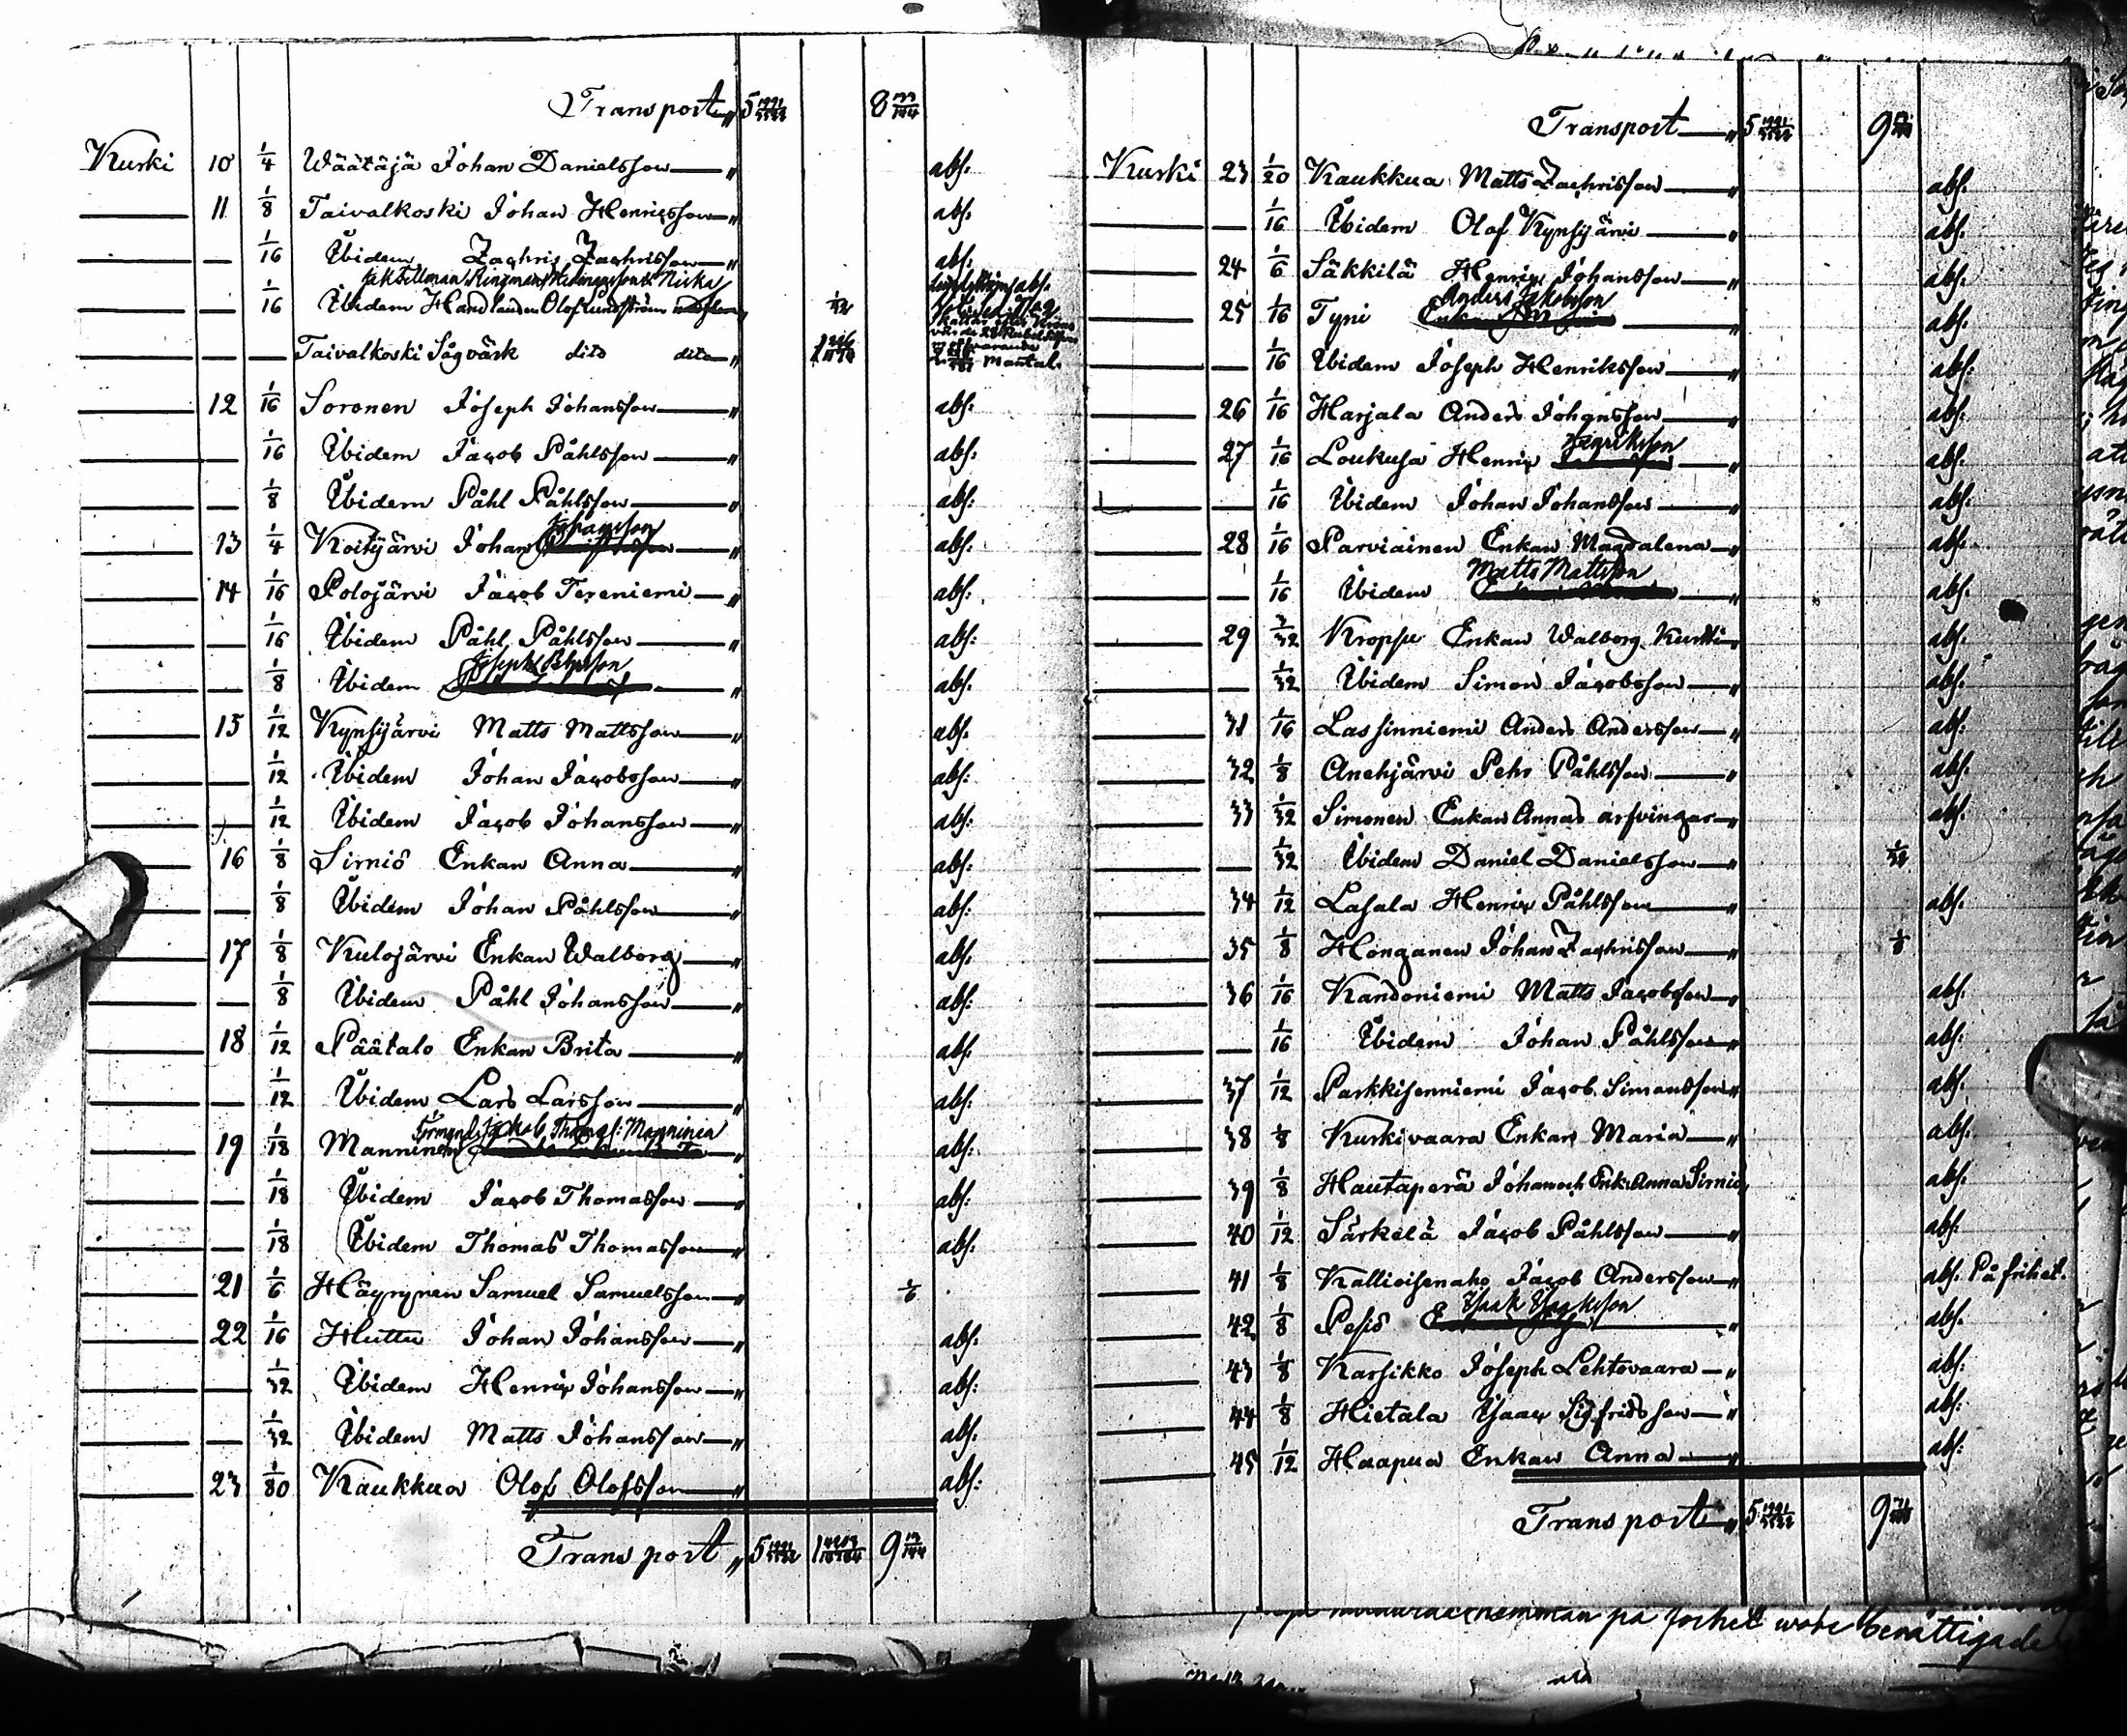 Transport " 5 8
Kurki 10 1/4 Wäätäjä Johan Danielsson — " abs:
— 11 1/8 Taivalkoski Johan Henricsson — " abs:
— — 1/16 Ibidem Zachris Zachrisson — " abs:
— — 1/16 Ibidem Handlanden Olof Lundström
— — — Taivalkoski Sågvärk dito dito "
— 12 1/16 Soronen Joseph Johansson — " abs:
— — 1/16 Ibidem Jacob Påhlsson — " abs:
— — 1/8 Ibidem Påhl Påhlsson — " abs:
Johansson
— 13 1/4 Koityärvi Johan — " abs:
— 14 1/16 Polojärvi Jacob Tereniemi — " abs:
— — 1/16 Ibidem Påhl Påhlsson — " abs:
Joseph
— — 1/8 Ibidem — " abs:
— 15 1/12 Kynsijärvi Matts Mattsson — " abs:
— — 1/12 Ibidem Johan Jacobsson — " abs:
— — 1/12 Ibidem Jacob Johansson — " abs:
— 16 1/8 Sirniö Enkan Anna — " abs:
— — 1/8 Ibidem Johan Påhlsson — " abs:
— 17 1/8 Kulojärvi Enkan Walborg — " abs:
— — 1/8 Ibidem Påhl Johansson — " abs:
— 18 1/12 Päätalo Enkan Brita — " abs:
— — 1/12 Ibidem Lars Larsson — " abs:
Jackob Thomas: Manninen
— 19 1/18 Manninen — " abs:
— — 1/18 Ibidem Jacob Thomasson — " abs:
— — 1/18 Ibidem Thomas Thomasson — " abs:
— 21 1/6 Häyrynen Samuel Samuelsson — " 1/6
— 22 1/16 Huttu Johan Johansson — " abs:
— — 1/32 Ibidem Henric Johansson — " abs:
— — 1/32 Ibidem Matts Johansson — " abs:
— 23 1/80 Kaukkua Olof Olofsson — " abs:
Transport " 5 1 9
Transport — " 5 9
Kurki 23 1/20 Kaukkua Matts Zachrisson — " abs:
— — 1/16 Ibidem Olof Kynsijärvi — " abs:
— 24 1/6 Säkkilä Henric Johansson — " abs:
Anders Jakobsson
— 25 1/16 Tyni — " abs:
— — 1/16 Ibidem Joseph Henriksson — " abs:
— 26 1/16 Harjala Anders Johansson — " abs:
Henriksson
— 27 1/16 Loukusa Henric — " abs:
— — 1/16 Ibidem Johan Johansson — " abs:
— 28 1/16 Parviainen Enkan Magdalena — " abs:
Matts Mattsson
— — 1/16 Ibidem — " abs:
— 29 3/32 Kroppu Enkan Walborg Kurtti — " abs:
— — 1/32 Ibidem Simon Jacobsson — " abs:
— 31 1/16 Lassinniemi Anders Andersson — " abs:
— 32 1/8 Anehjärvi Pehr Påhlsson — " abs:
— 33 1/32 Simonen Enkan Annas arfvingar — " abs:
— — 1/32 Ibidem Daniel Danielsson — " 1/32
— 34 1/12 Lasala Henric Påhlsson — " abs:
— 35 1/8 Honganen Johan Zachrisson — " 1/8
— 36 1/16 Kandoniemi Matts Jacobsson — " abs:
— — 1/16 Ibidem Johan Påhlsson — " abs:
— 37 1/12 Parkkisenniemi Jacob Simonsson " abs:
— 38 1/8 Kurkivaara Enkan Maria — " abs:
— 39 1/8 Hautaperä Johan och Enk: Anna Sirniö " abs:
— 40 1/12 Särkelä Jacob Påhlsson — " abs:
— 41 1/8 Kallioisenaho Jacob Andersson — " abs: På frihet.
Isaak Isaksson
— 42 1/8 Pesiö — " abs:
— 43 1/8 Karsikko Joseph Lehtovaara — " abs:
— 44 1/8 Hietala Isaac Sigfridsson — " abs:
— 45 1/12 Haapua Enkan Anna — " abs:
Transport — " 5 9
på frihet woro berättigade